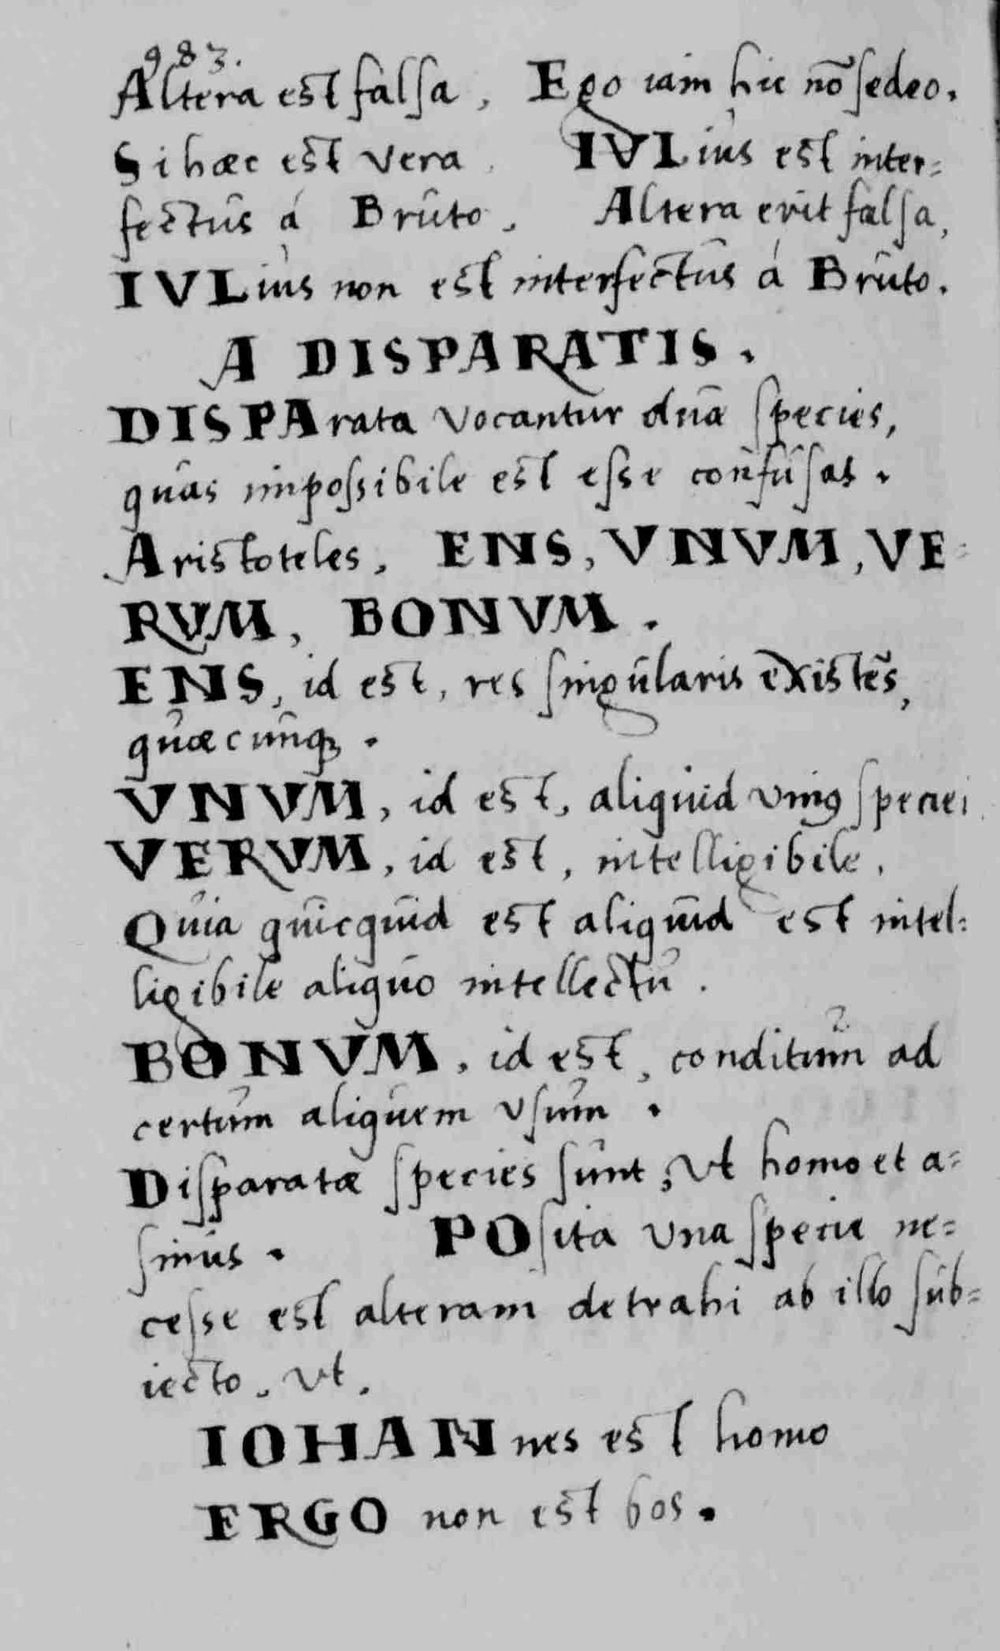 983.
Altera est falsa, Ego iam hic nō sedeo.
Si hæc est vera. IVLius est inter=
fectus á Bruto. Altera erit falsa,
IVLius non est interfectus á Bruto.
A DISPARATIS.
DISPArata vocantur duæ species,
quas impossibile est esse confusas.
Aristoteles. ENS, VNVM, VE=
RVM, BONVM.
ENS, id est, res singularis existēs,
quæcunqꝫ.
VNVM, id est, aliquid vniꝰ speciei.
VERVM, id est, intelligibile.
Quia quicquid est aliquid est intel=
ligibile aliquo intellectu.
BONVM, id est, conditum ad
certum aliquem vsum.
Disparatæ species sunt, vt homo et a=
sinus. POsita vna specie ne=
cesse est alteram detrahi ab illo sub=
iecto. vt.
IOHANnes est homo
ERGO non est bos.